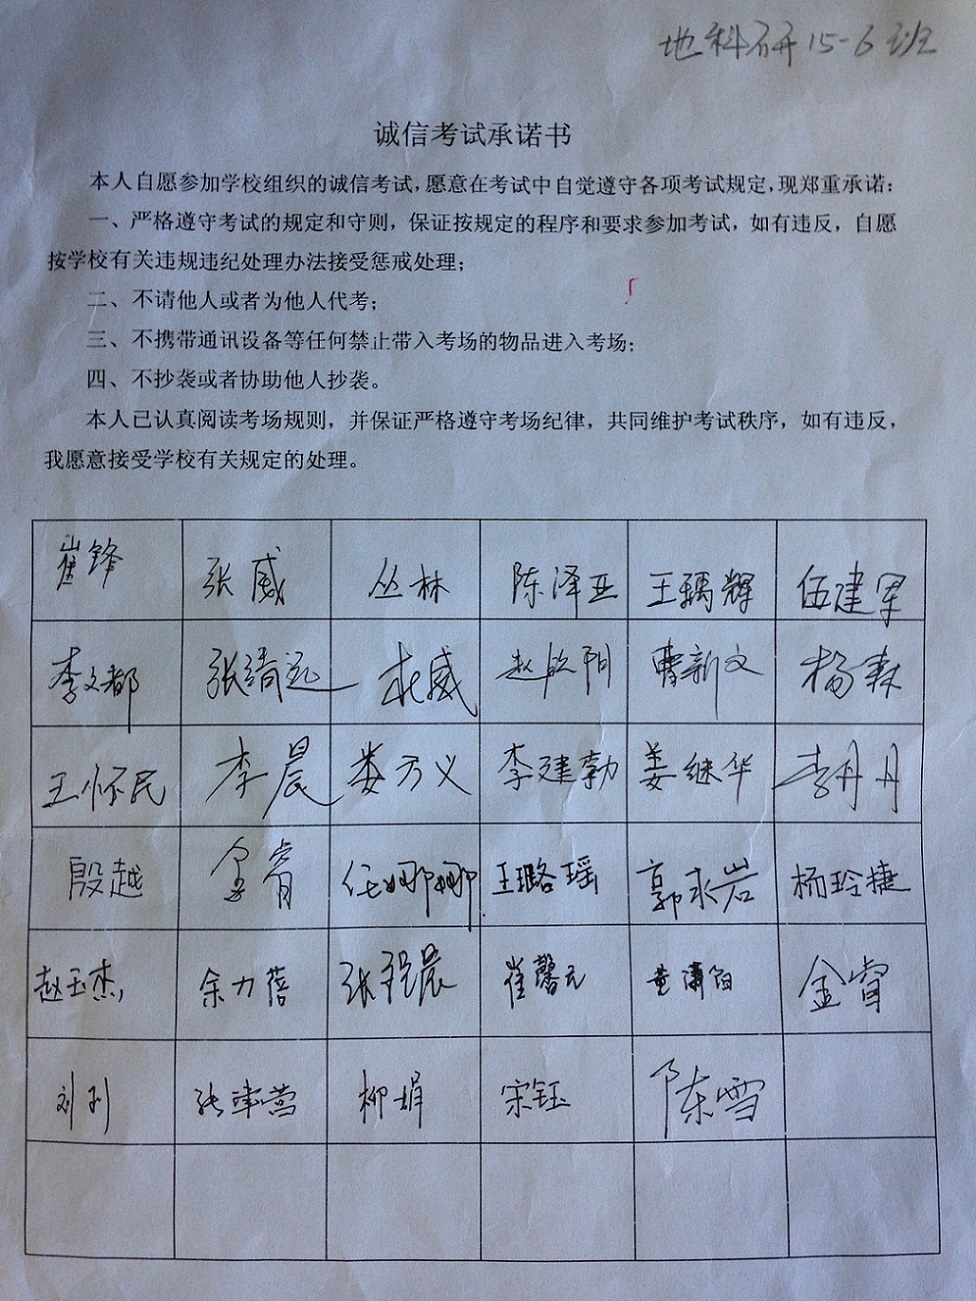 地科研15-6班
诚信考试承诺书
本人自愿参加学校组织的诚信考试,愿意在考试中自觉遵守各项考试规定,现郑重承诺:
一、严格遵守考试的规定和守则，保证按规定的程序和要求参加考试，如有违反，自愿
按学校有关违规违纪处理办法接受惩戒处理;
二、不请他人或者为他人代考;
三、不携带通讯设备等任何禁止带入考场的物品进入考场;
四、不抄袭或者协助他人抄袭。
本人已认真阅读考场规则，并保证严格遵守考场纪律，共同维护考试秩序，如有违反，
我愿意接受学校有关规定的处理。
崔锋 张威 丛林 陈泽亚 王瑀辉 伍建军
李文都 张绮远 杜威 赵欣阳 曹新文 杨森
王怀民 李晨 娄方义 李建勃 姜继华 李丹丹
殷越 任娜娜 王璐瑶 郭永岩 杨玲捷
赵玉杰 余力蓓 张程晨 崔馨元 金睿
柳娟 宋钰 陈雪